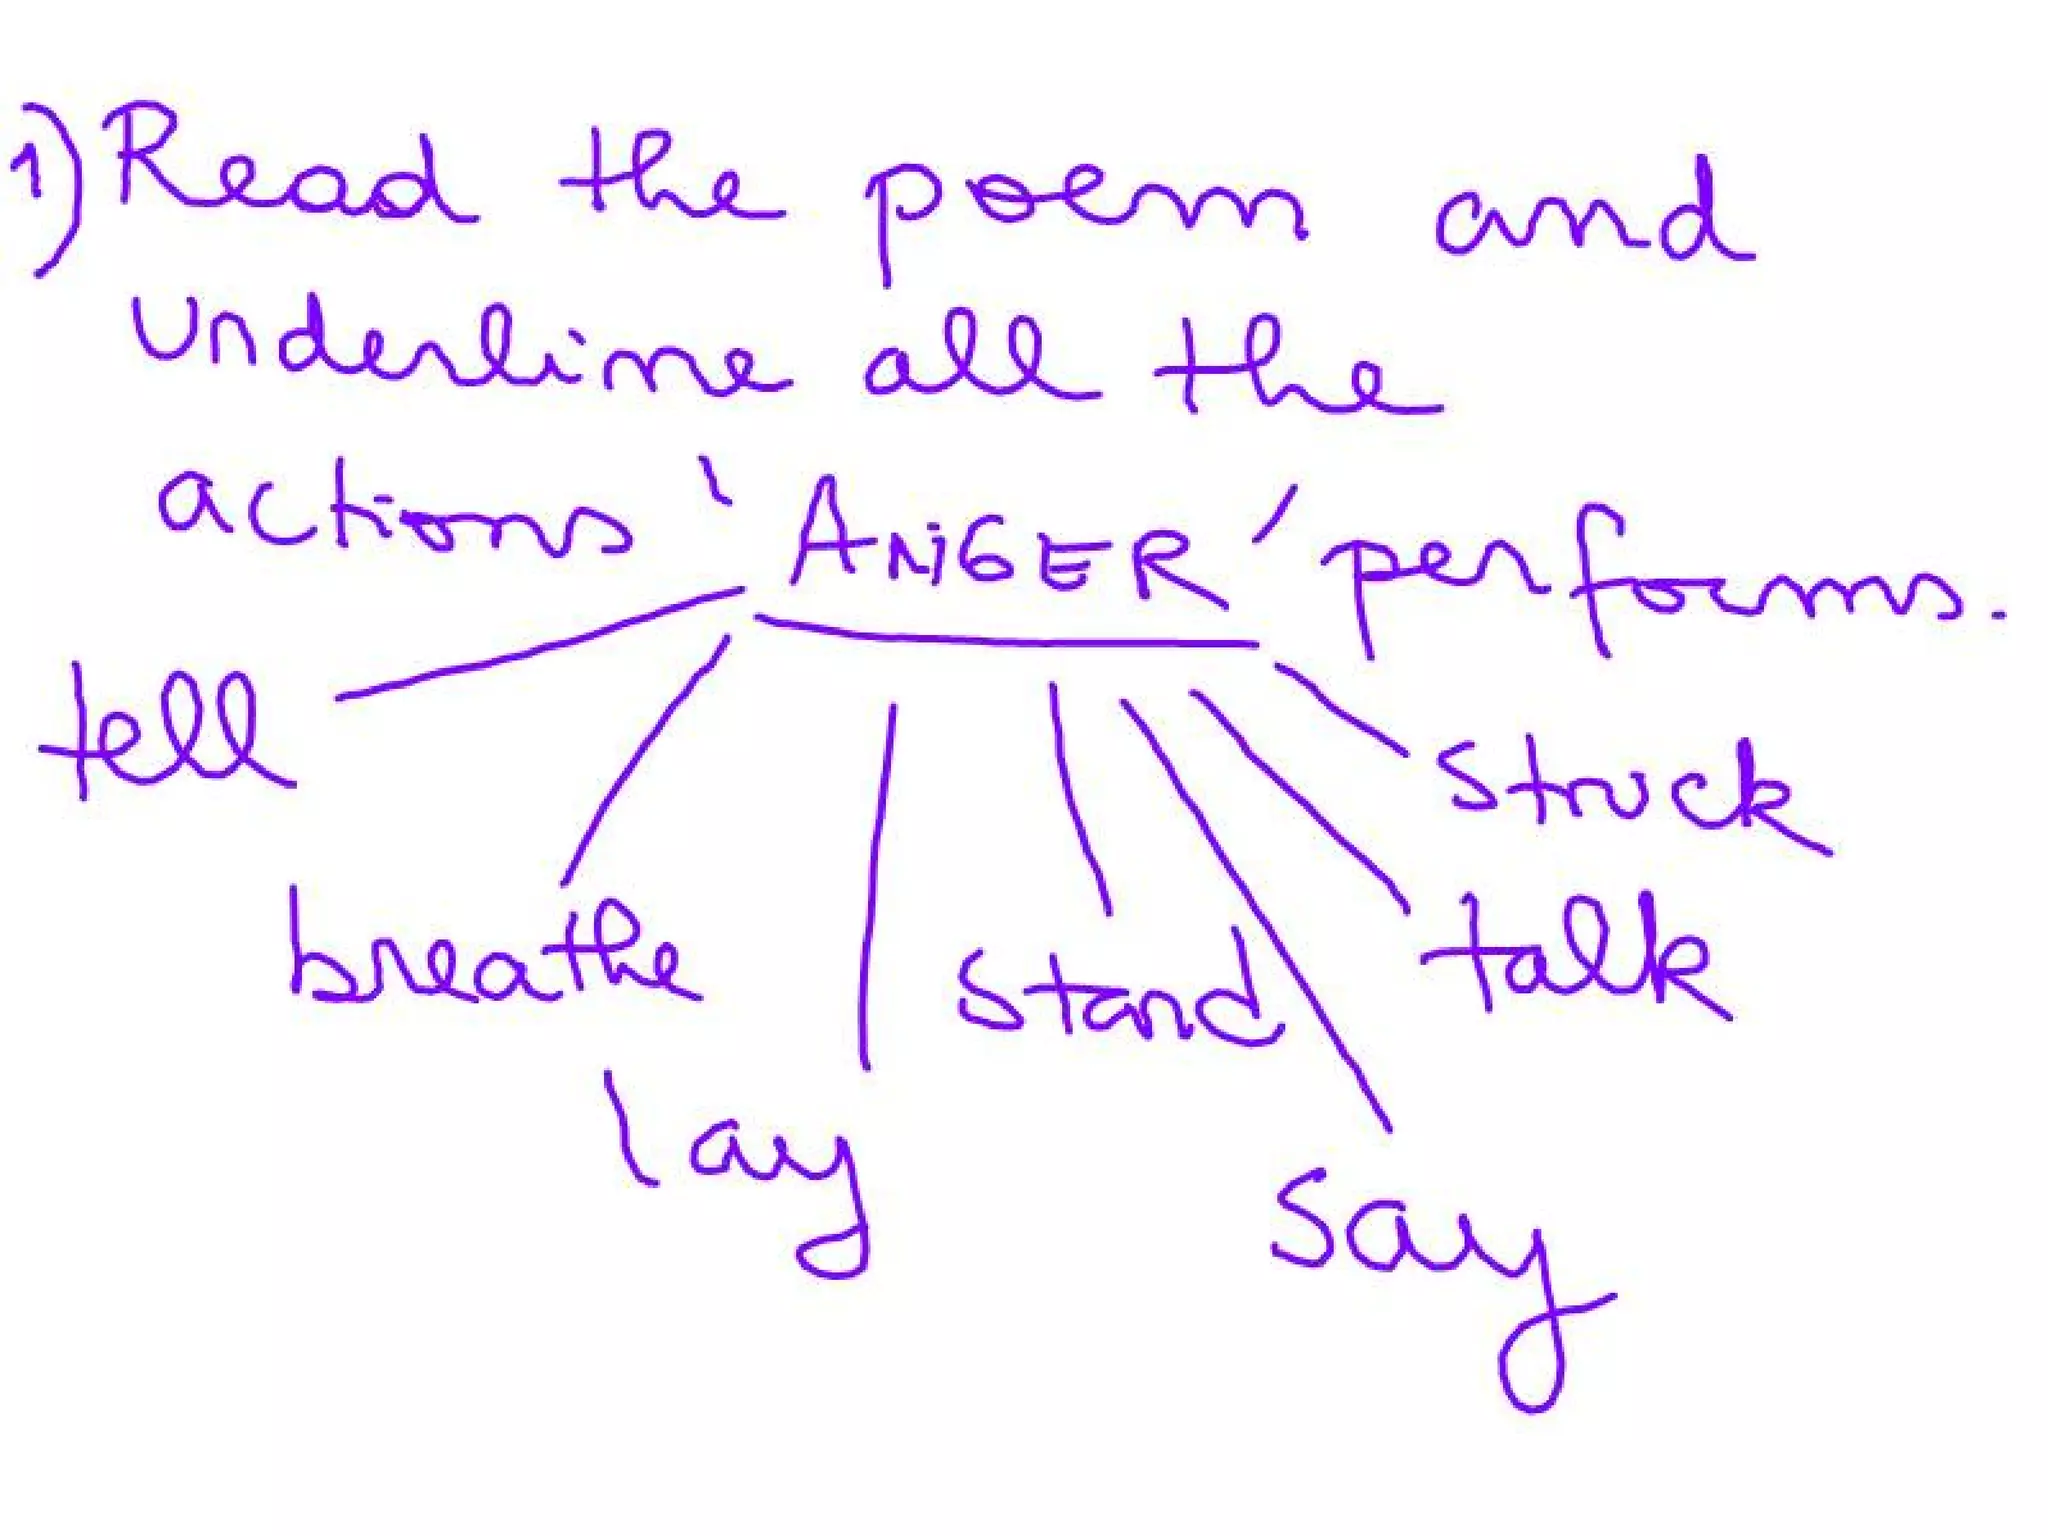 1) Read the poem and
underline all the
actions 'ANGER' performs.
tell
struck
breathe
stand
talk
lay
say